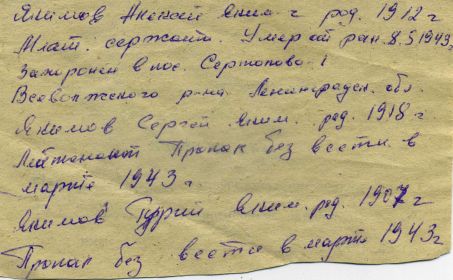 Якимов Алексей Яким. г. род. 1912 г
Млат. сержант. Умер от ран. 8.5 1943 г
Захоронен в пос. Сертолово 1
Всеволжского р-на Ленинградск. обл.
Якимов Сергей Яким. род. 1918 г.
Лейтенант Пропал без вести в
марте 1943 г.
Якимов Гурий Яким. род. 1907 г
Пропал без вести в марте 1943 г